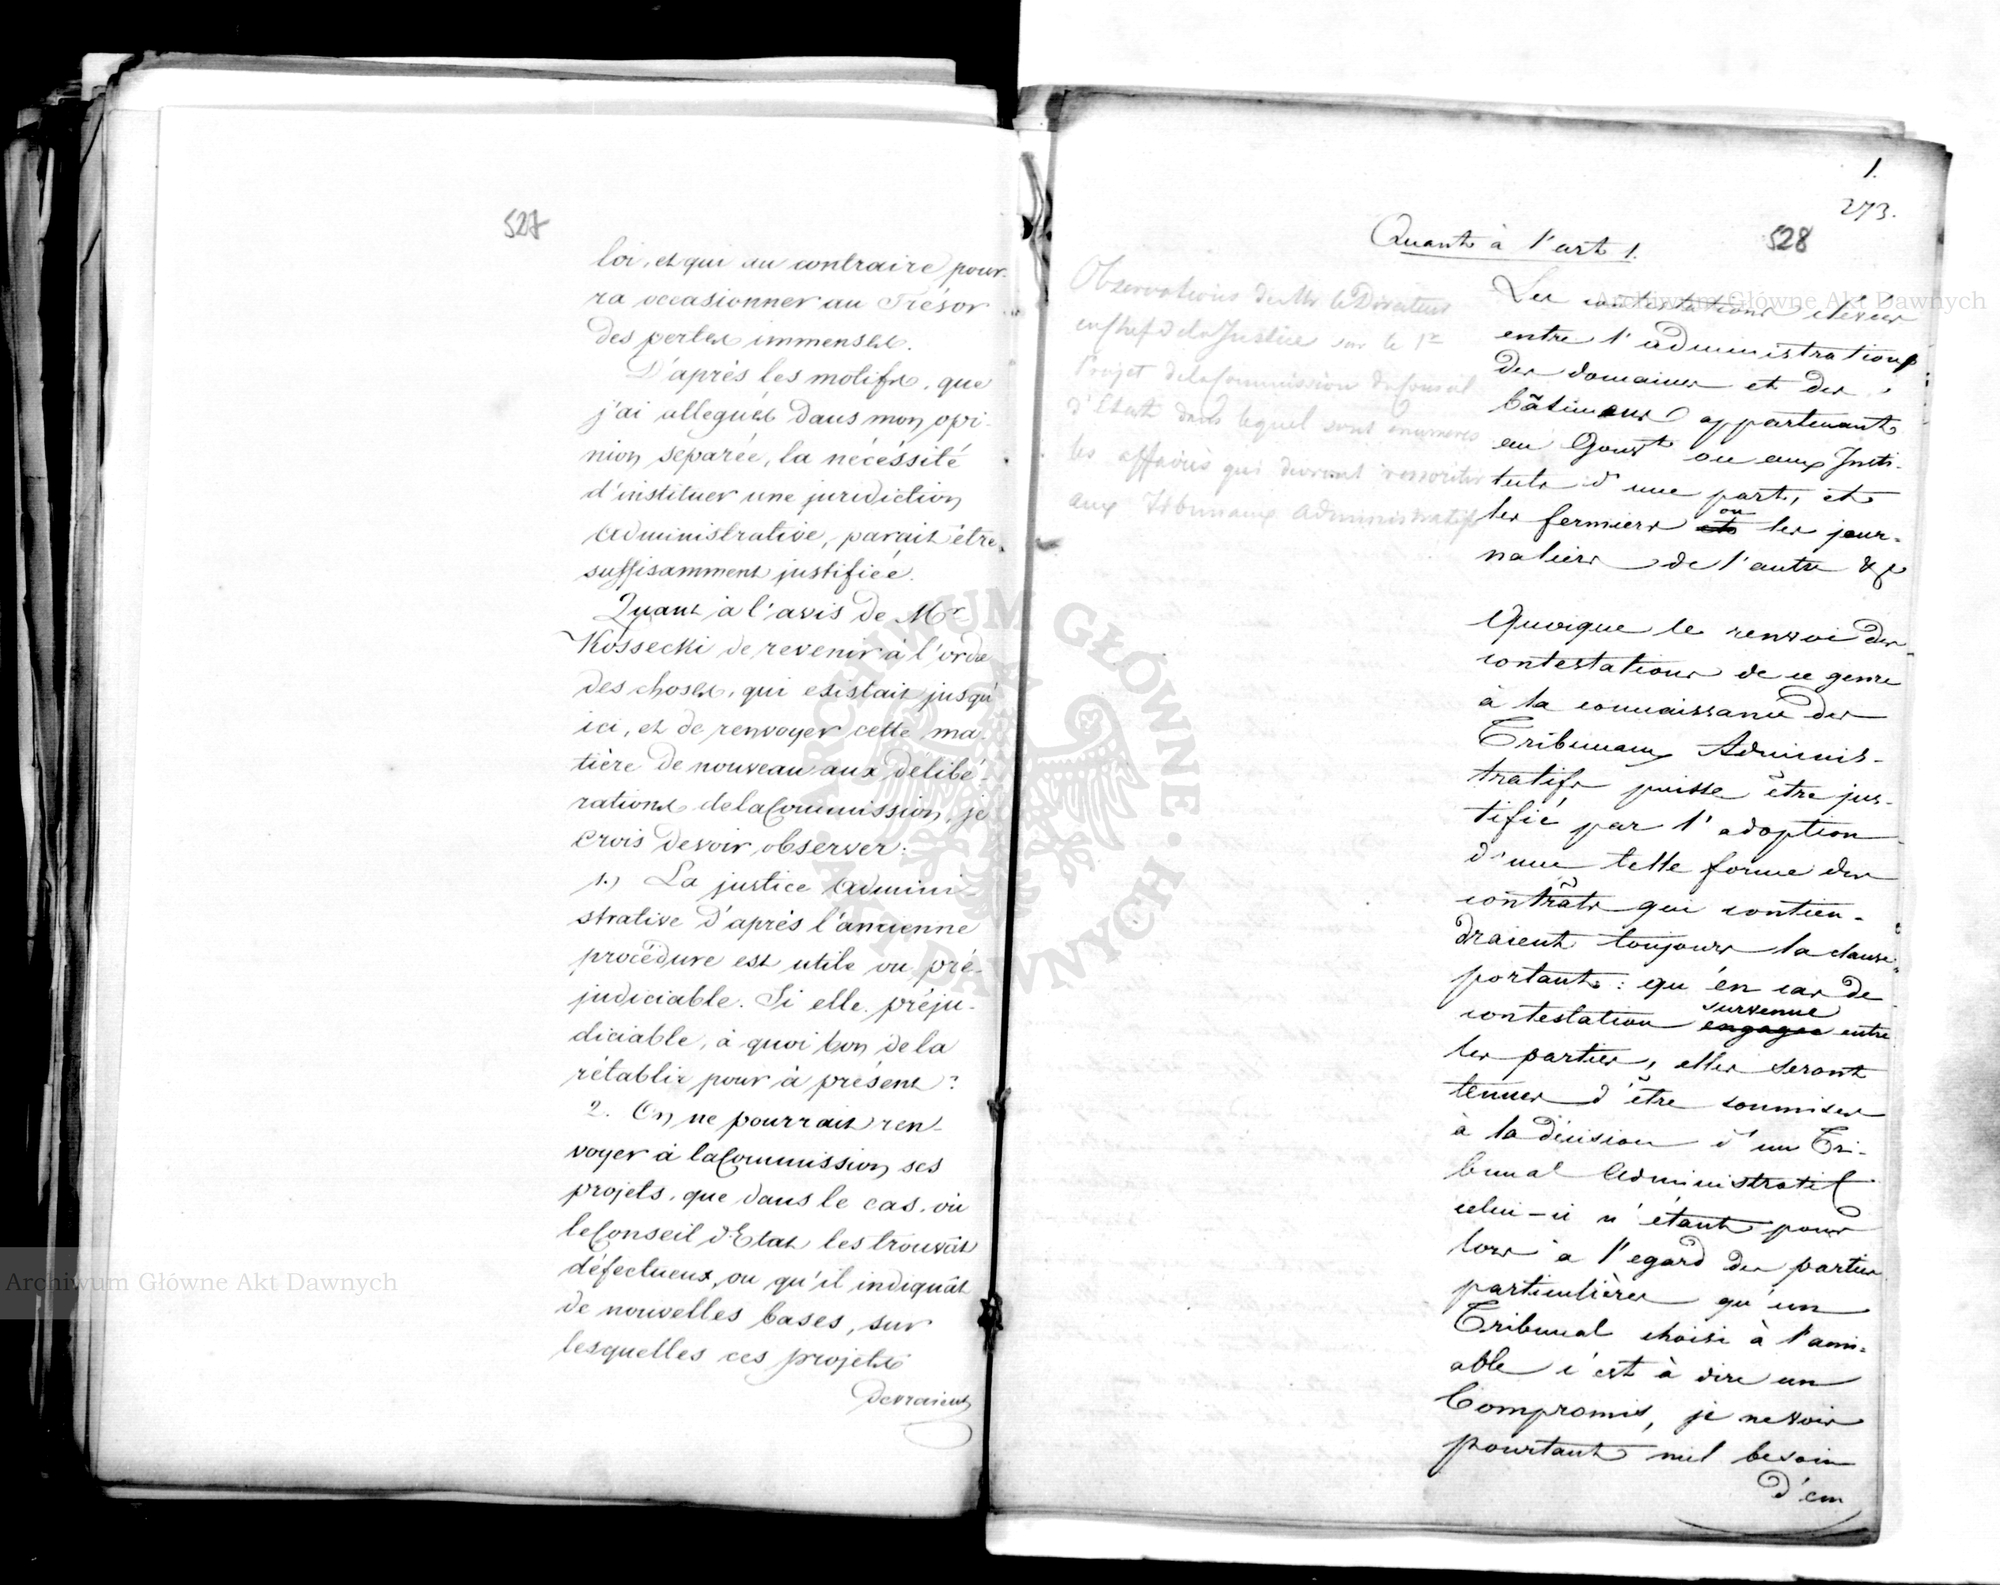 527
loi, et qui au contraire pour-
ra occasionner au Trésor
des pertes immenses.
D'après les motifs, que
j'ai allegués dans mon opi-
nion separée, la nécéssité
d'instituer une juridiction
administrative, parait être
suffisamment justifiée.
Quant à l'avis de Mr
Kossecki de revenir à l'ordre
des choses, qui esistait jusqu'
ici, et de renvoyer cette ma-
tière de nouveau aux délibé-
rations de la Commission, je
crois devoir observer:
1.) La justice admini-
strative d'après l'ancienne
procédure est utile ou pré-
judiciable. Si elle préju-
diciable, à quoi bon de la
rétablir pour à présent?
2. On ne pourrait ren-
voyer à la Commission ses
projets, que dans le cas, où
le Conseil d'Etat les trouvât
défectueux, ou qu'il indiquât
de nouvelles bases, sur
lesquelles ces projets
devraient
1.
273.
528
Quant à l'art 1.
Observations de Mr le Directeur
en Chef de la Justice sur le 1er
Projet de la Commission du Conseil
d'Etat dans lequel sont enumerés
les affaires qui devront ressortir
aux Tribunaux Administratifs
Les contestations élevées
entre l'administration
des domaines et des
bâtimens appartenant
au Gouvt ou aux Insti-
tuts d'une part, et
les fermiers et ou les jour-
naliers de l'autre &c
Quoique le renvoi des
contestations de ce genre
à la connaissance des
Tribunaux Adminis-
tratifs puisse être jus-
tifié par l'adoption
d'une telle forme des
contrâts qui contien-
draient toujours la clause
portant: qu'en cas de
contestation engagée survenue entre
les parties, elles seront
tenues d'être soumises
à la décision d'un Tri-
bunal Administratif
celui-ci n'étant pour
lors à l'egard des parties
particulières qu'un
Tribunal choisi à l'ami-
able c'est à dire un
Compromis, je ne vois
pourtant nul besoin
d'en
Archiwum Główne Akt Dawnych
Archiwum Główne Akt Dawnych
ARCHIWUM GŁÓWNE AKT DAWNYCH